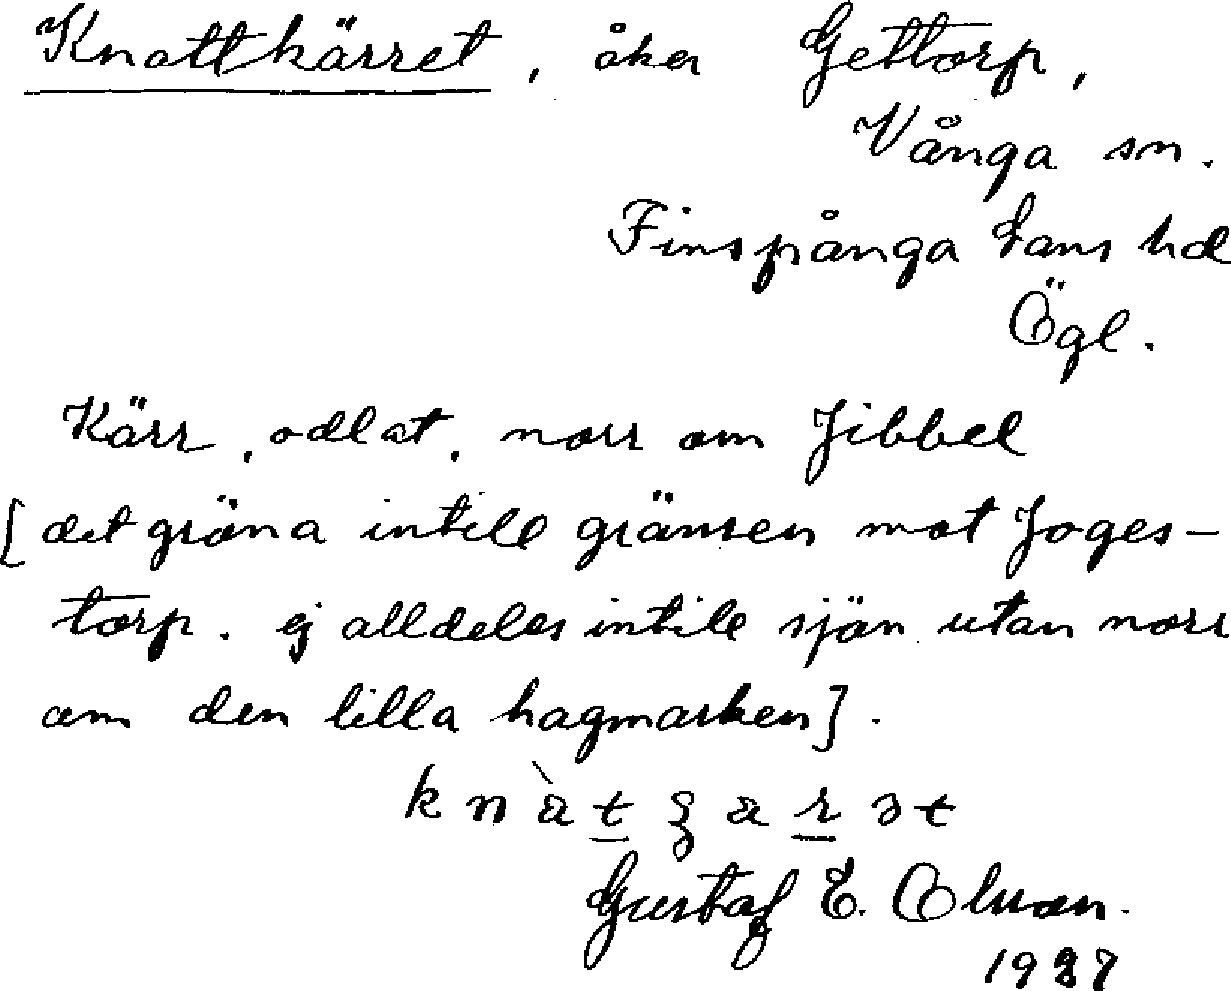 Knattkärret, åker Gettorp,
Vånga sn.
Finspånga Läns hd
Ögl.
Kärr, odlat, norr om Jibbel
[det gröna intill gränsen mot Joges-
torp. ej alldeles intill sjön utan norr
om den lilla hagmarken].
Gustaf E. Olsson.